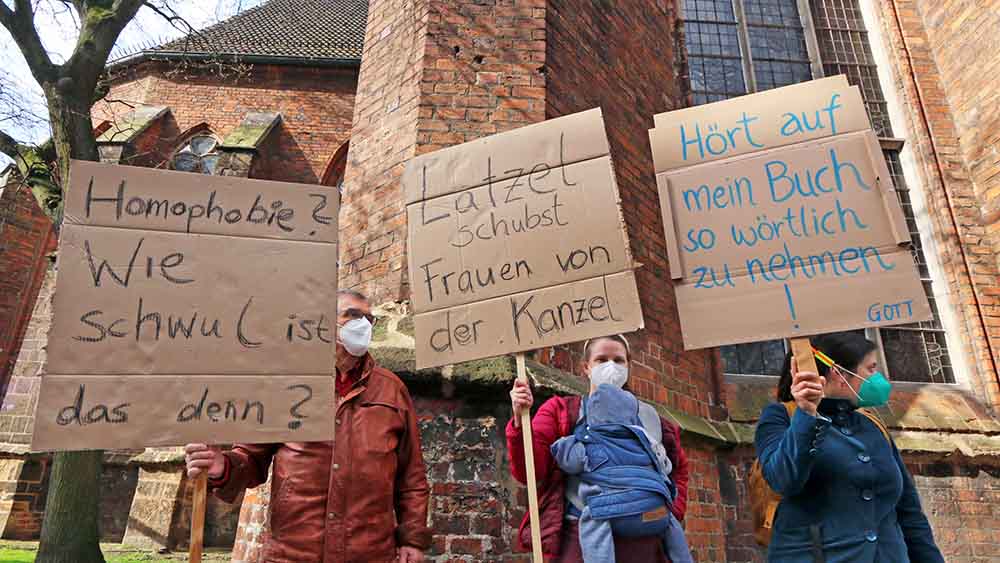 Homophobie?
Wie
schwul ist
das denn?
Latzel
schubst
Frauen von
der Kanzel
Hört auf
mein Buch
so wörtlich
zu nehmen
!
GOTT